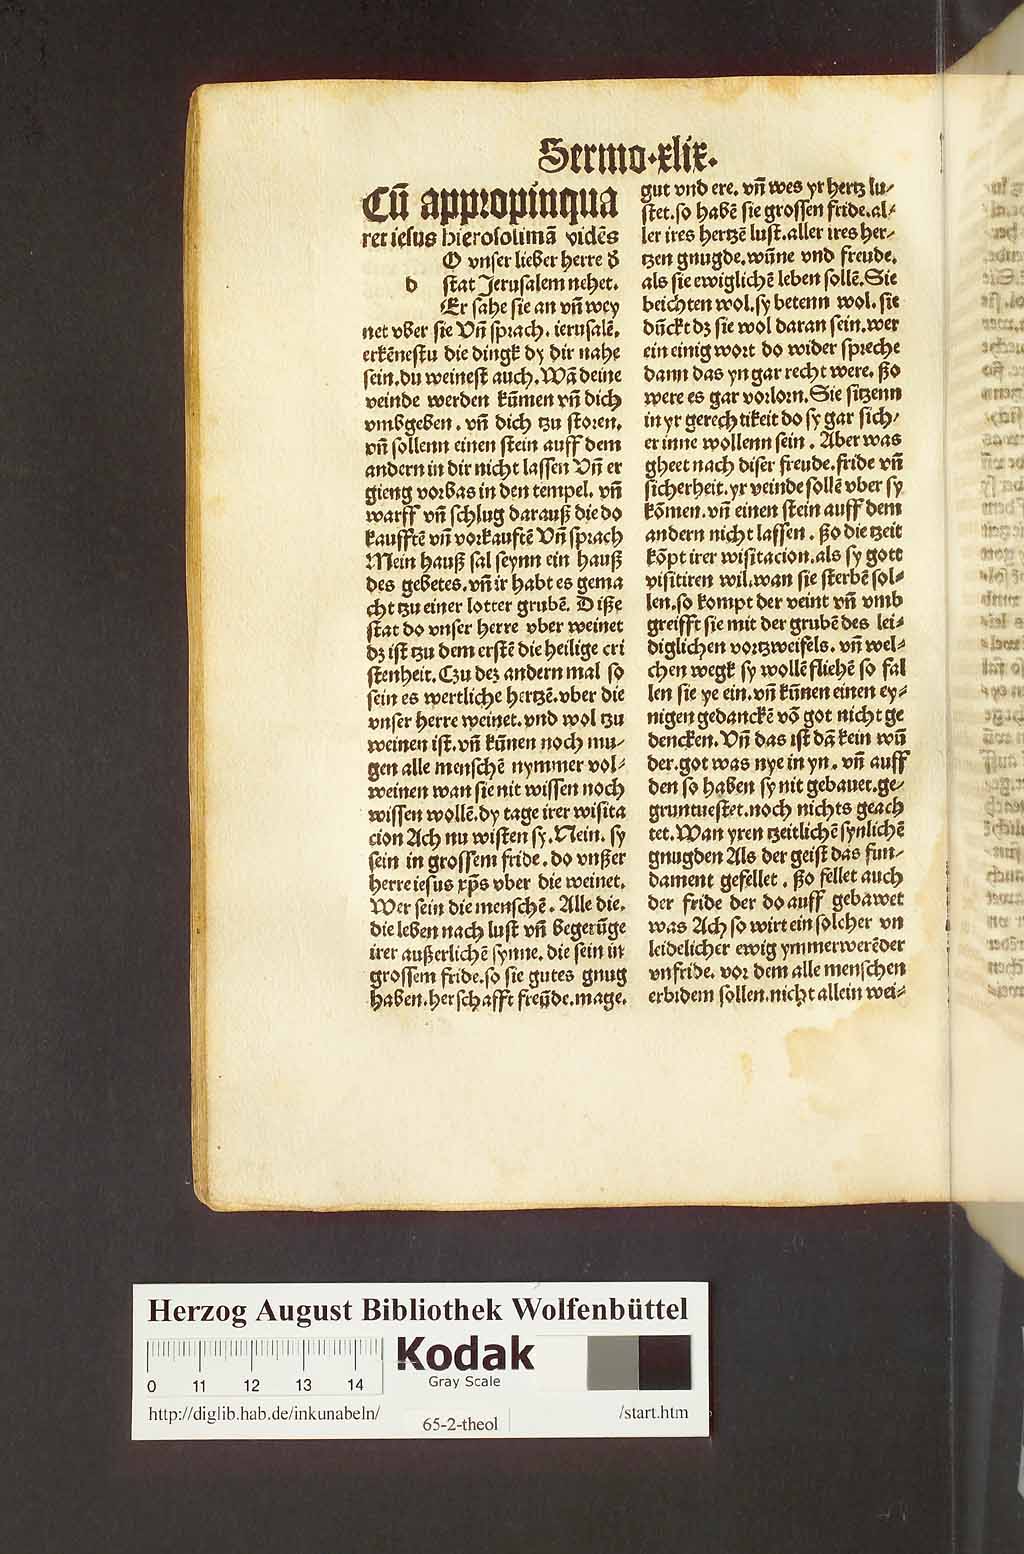 Sermo·xlix.
Cū appropinqua
ret iesus hierosolimā vidēs
O vnser lieber herre d̕
d stat Jerusalem nehet.
Er sahe sie an vñ wey
net vber sie Vñ sprach. ierusalē.
erkēnestu die dingk dy dir nahe
sein. du weinest auch. Wā deine
veinde werden kūmen vñ dich
vmbgeben. vñ dich tzu storen.
vñ sollenn einen stein auff dem
andern in dir nicht lassen Vñ er
gieng vorbas in den tempel. vñ
warff vñ schlug darauß die do
kaufftē vñ vorkauftē Vñ sprach
Mein hauß sal seynn ein hauß
des gebetes. vñ ir habt es gema
cht tzu einer lotter grubē. Diße
stat do vnser herre vber weinet
dz ist tzu dem erstē die heilige cri
stenheit. Czu dez andern mal so
sein es wertliche hertzē. vber die
vnser herre weinet. vnd wol tzu
weinen ist. vñ kūnen noch mu-
gen alle menschē nymmer vol-
weinen wan sie nit wissen noch
wissen wollē. dy tage irer wisita
cion Ach nu wisten sy. Nein. sy
sein in grossem fride. do vnßer
herre iesus xp̄s vber die weinet.
Wer sein die menschē. Alle die.
die leben nach lust vñ begerūge
irer außerlichē synne. die sein in
grossem fride. so sie gutes gnug
haben. herschafft freūde. mage.
gut vnd ere. vñ wes yr hertz lu-
stet. so habē sie grossen fride. al-
ler ires hertzē lust. aller ires her-
tzen gnugde. wūne vnd freude.
als sie ewiglichē leben sollē. Sie
beichten wol. sy betenn wol. sie
dūckt dz sie wol daran sein. wer
ein einig wort do wider spreche
dann das yn gar recht were. ßo
were es gar vorlorn. Sie sitzenn
in yr gerechtikeit do sy gar sich-
er inne wollenn sein. Aber was
gheet nach diser freude. fride vñ
sicherheit. yr veinde sollē vber sy
kōmen. vñ einen stein auff dem
andern nicht lassen. ßo die tzeit
kōpt irer wisitacion. als sy gott
visitiren wil. wan sie sterbē sol-
len. so kompt der veint vñ vmb
greifft sie mit der grubē des lei-
diglichen vortzweifels. vñ wel-
chen wegk sy wollē fliehē so fal
len sie ye ein. vñ kūnen einen ey-
nigen gedanckē vō got nicht ge
dencken. Vñ das ist dā kein wū
der. got was nye in yn. vñ auff
den so haben sy nit gebauet. ge-
gruntuestet. noch nichts geach
tet. Wan yren tzeitlichē synlichē
gnugden Als der geist das fun-
dament gefellet. ßo fellet auch
der fride der do auff gebawet
was Ach so wirt ein solcher vn
leidelicher ewig ymmerwerēder
vnfride. vor dem alle menschen
erbidem sollen. nicht allein wei-
Herzog August Bibliothek Wolfenbüttel
Kodak
Gray Scale
0 11 12 13 14
http://diglib.hab.de/inkunabeln/
65-2-theol
/start.htm